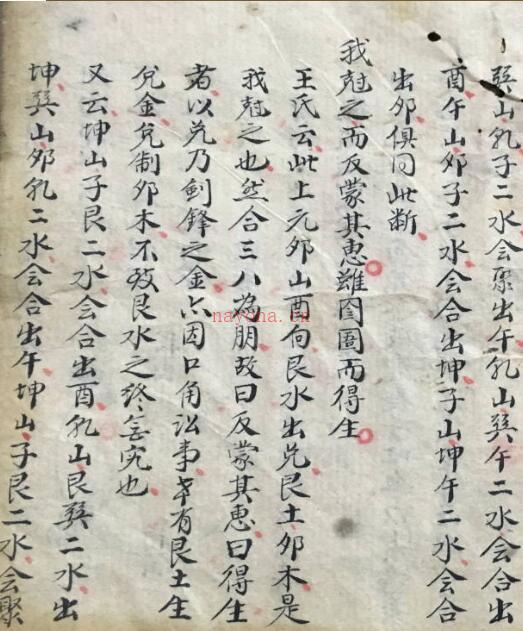 巽山乹子二水会聚出午乹山巽午二水会合出
酉午山夘子二水会合出坤子山坤午二水会合
出夘俱同此断
我尅之而反蒙其惠雖囹圄而得生
王氏云此上元夘山酉向艮水出兑艮土夘木是
我尅之也然合三八為朋故曰反蒙其惠曰得生
者以兑乃釖鋒之金六因口角訟事幸有艮土生
兑金兑制夘木不致艮水之终含宄也
又云坤山子艮二水会合出酉乹山艮巽二水出
坤巽山夘乹二水会合出午坤山子艮二水会聚
nayona.cn